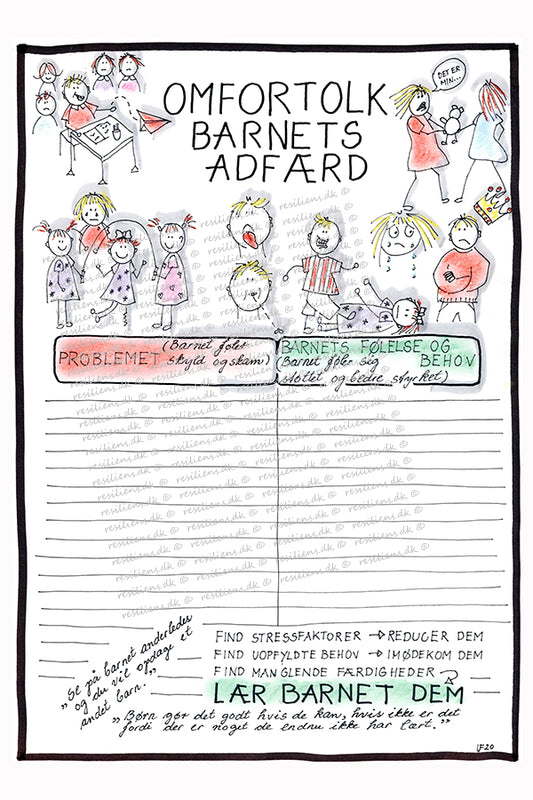 OMFORTOLK
BARNETS
ADFÆRD
DET ER
MIN...
PROBLEMET
(Barnet føler
skyld og skam)
BARNETS FØLELSE OG
BEHOV
(Barnet føler sig
støttet og bedre styrket)
resiliens.dk ©
"Se på barnet anderledes
og du vil opdage et
andet barn."
FIND STRESSFAKTORER → REDUCER DEM
FIND UOPFYLDTE BEHOV → IMØDEKOM DEM
FIND MANGLENDE FÆRDIGHEDER
LÆR BARNET DEM
"Børn gør det godt hvis de kan, hvis ikke er det
fordi der er noget de endnu ikke har lært."
LF20